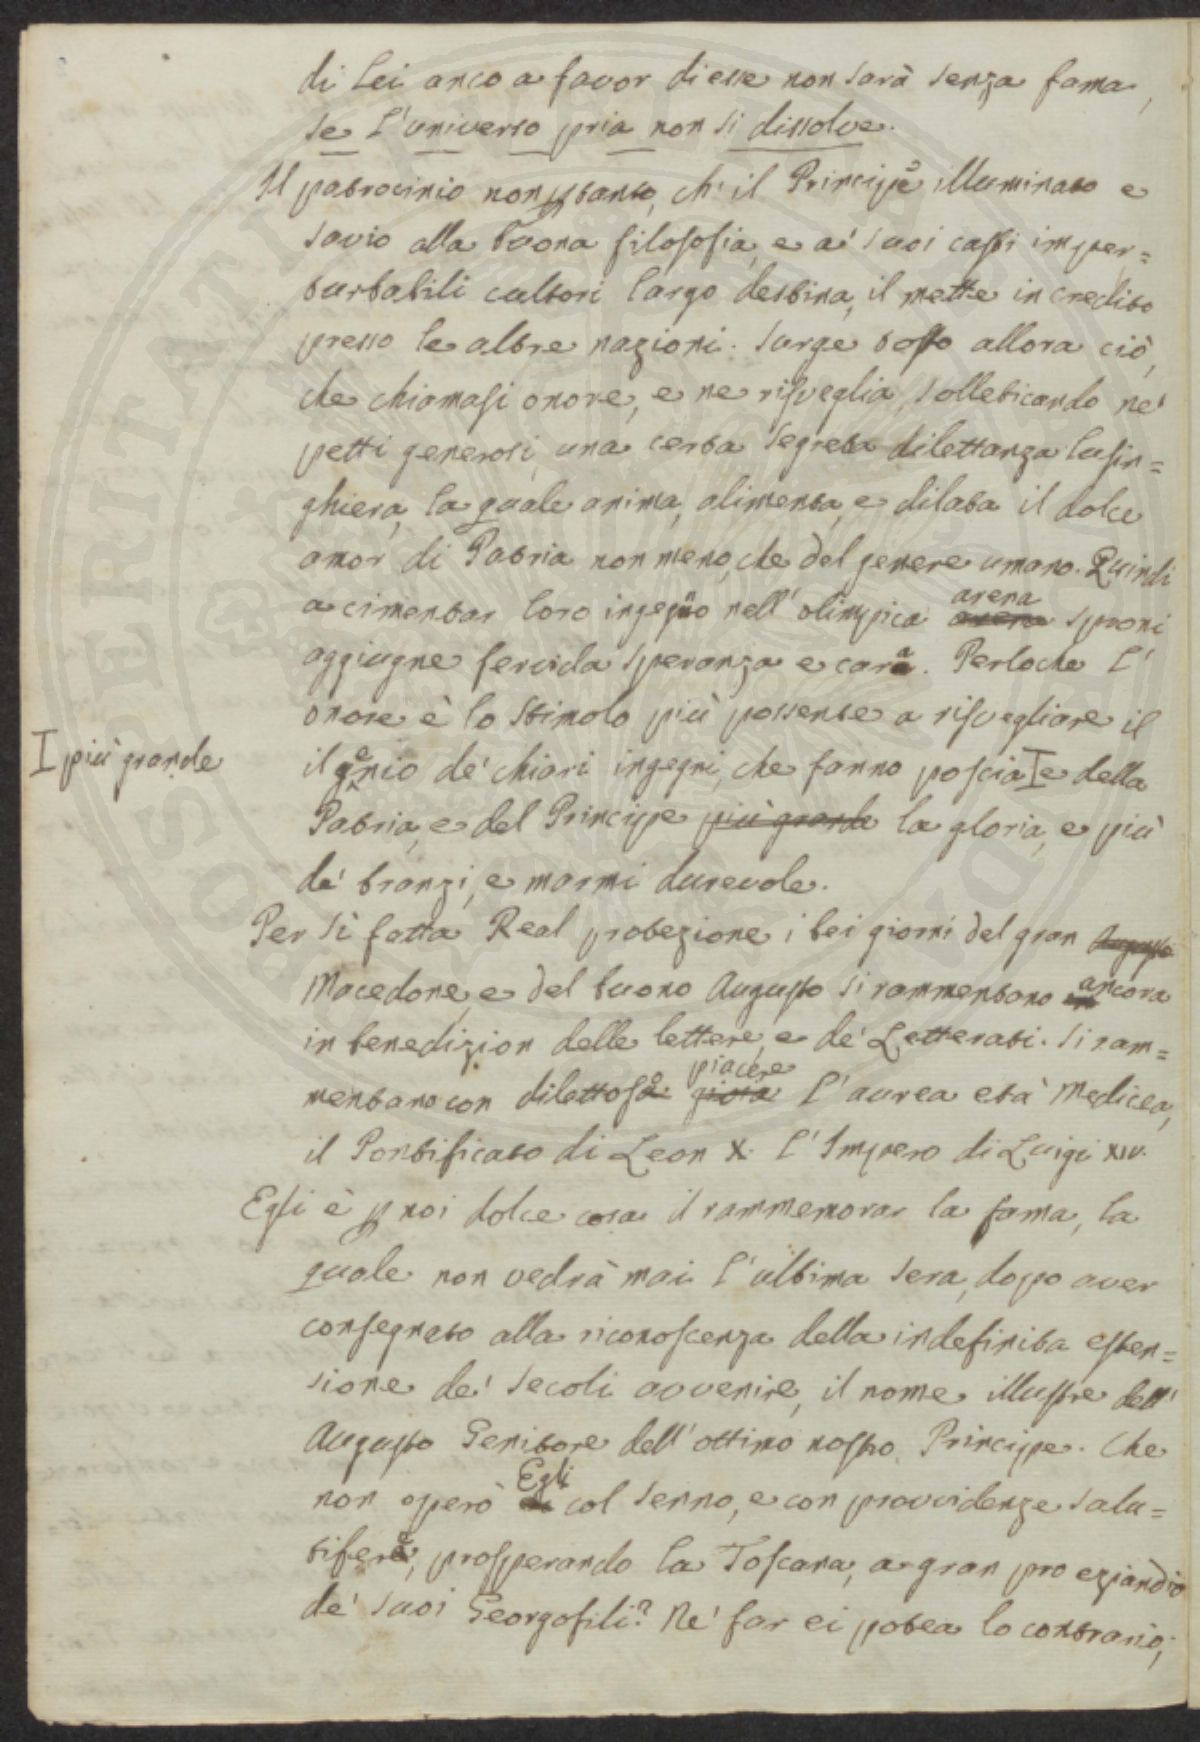 di Lei anco a favor di esse non sarà senza fama,
se l'universo pria non si dissolve.
Il patrocinio non ptanto, ch' il Principe illuminato e
savio alla buona filosofia, e a' suoi casti imper=
turbabili cultori largo destina, il mette in credito
presso le altre nazioni. Surge tosto allora ciò,
che chiamasi onore, e ne risveglia, solleticando ne'
petti generosi, una certa segreta dilettanza lusin=
ghiera, la quale anima, alimenta, e dilata il dolce
amor di Patria non meno, che del genere umano. Quindi
arena
a cimentar loro ingegno nell' olimpica arena sproni
aggiugne fervida speranza e cara. Perloche l'
onore è lo stimolo più possente a risvegliare il
I più grande
il genio de' chiari ingegni, che fanno poscia I e della
Patria, e del Principe più grande la gloria, e più
de' bronzi, e marmi durevole.
Per sì fatta Real protezione i bei giorni del gran Augusto
Macedone, e del buono Augusto si rammentono ancora
in benedizion delle lettere, e de' Letterati. Si ram=
piacere
mentano con dilettoso gioia l'aurea età Medicea,
il Pontificato di Leon X. l'Impero di Luigi XIV.
Egli è p noi dolce cosa il rammemorar la fama, la
quale non vedrà mai l'ultima sera, dopo aver
consegnato alla riconoscenza della indefinita esten=
sione de' secoli avvenire, il nome illustre dell'
Augusto Genitore dell' ottimo nostro Principe. Che
Egli
non operò col senno, e con provvidenze salu=
tifere, prosperando la Toscana, a gran pro eziandio
de' suoi Georgofili? Ne' far ei potea lo contrario;